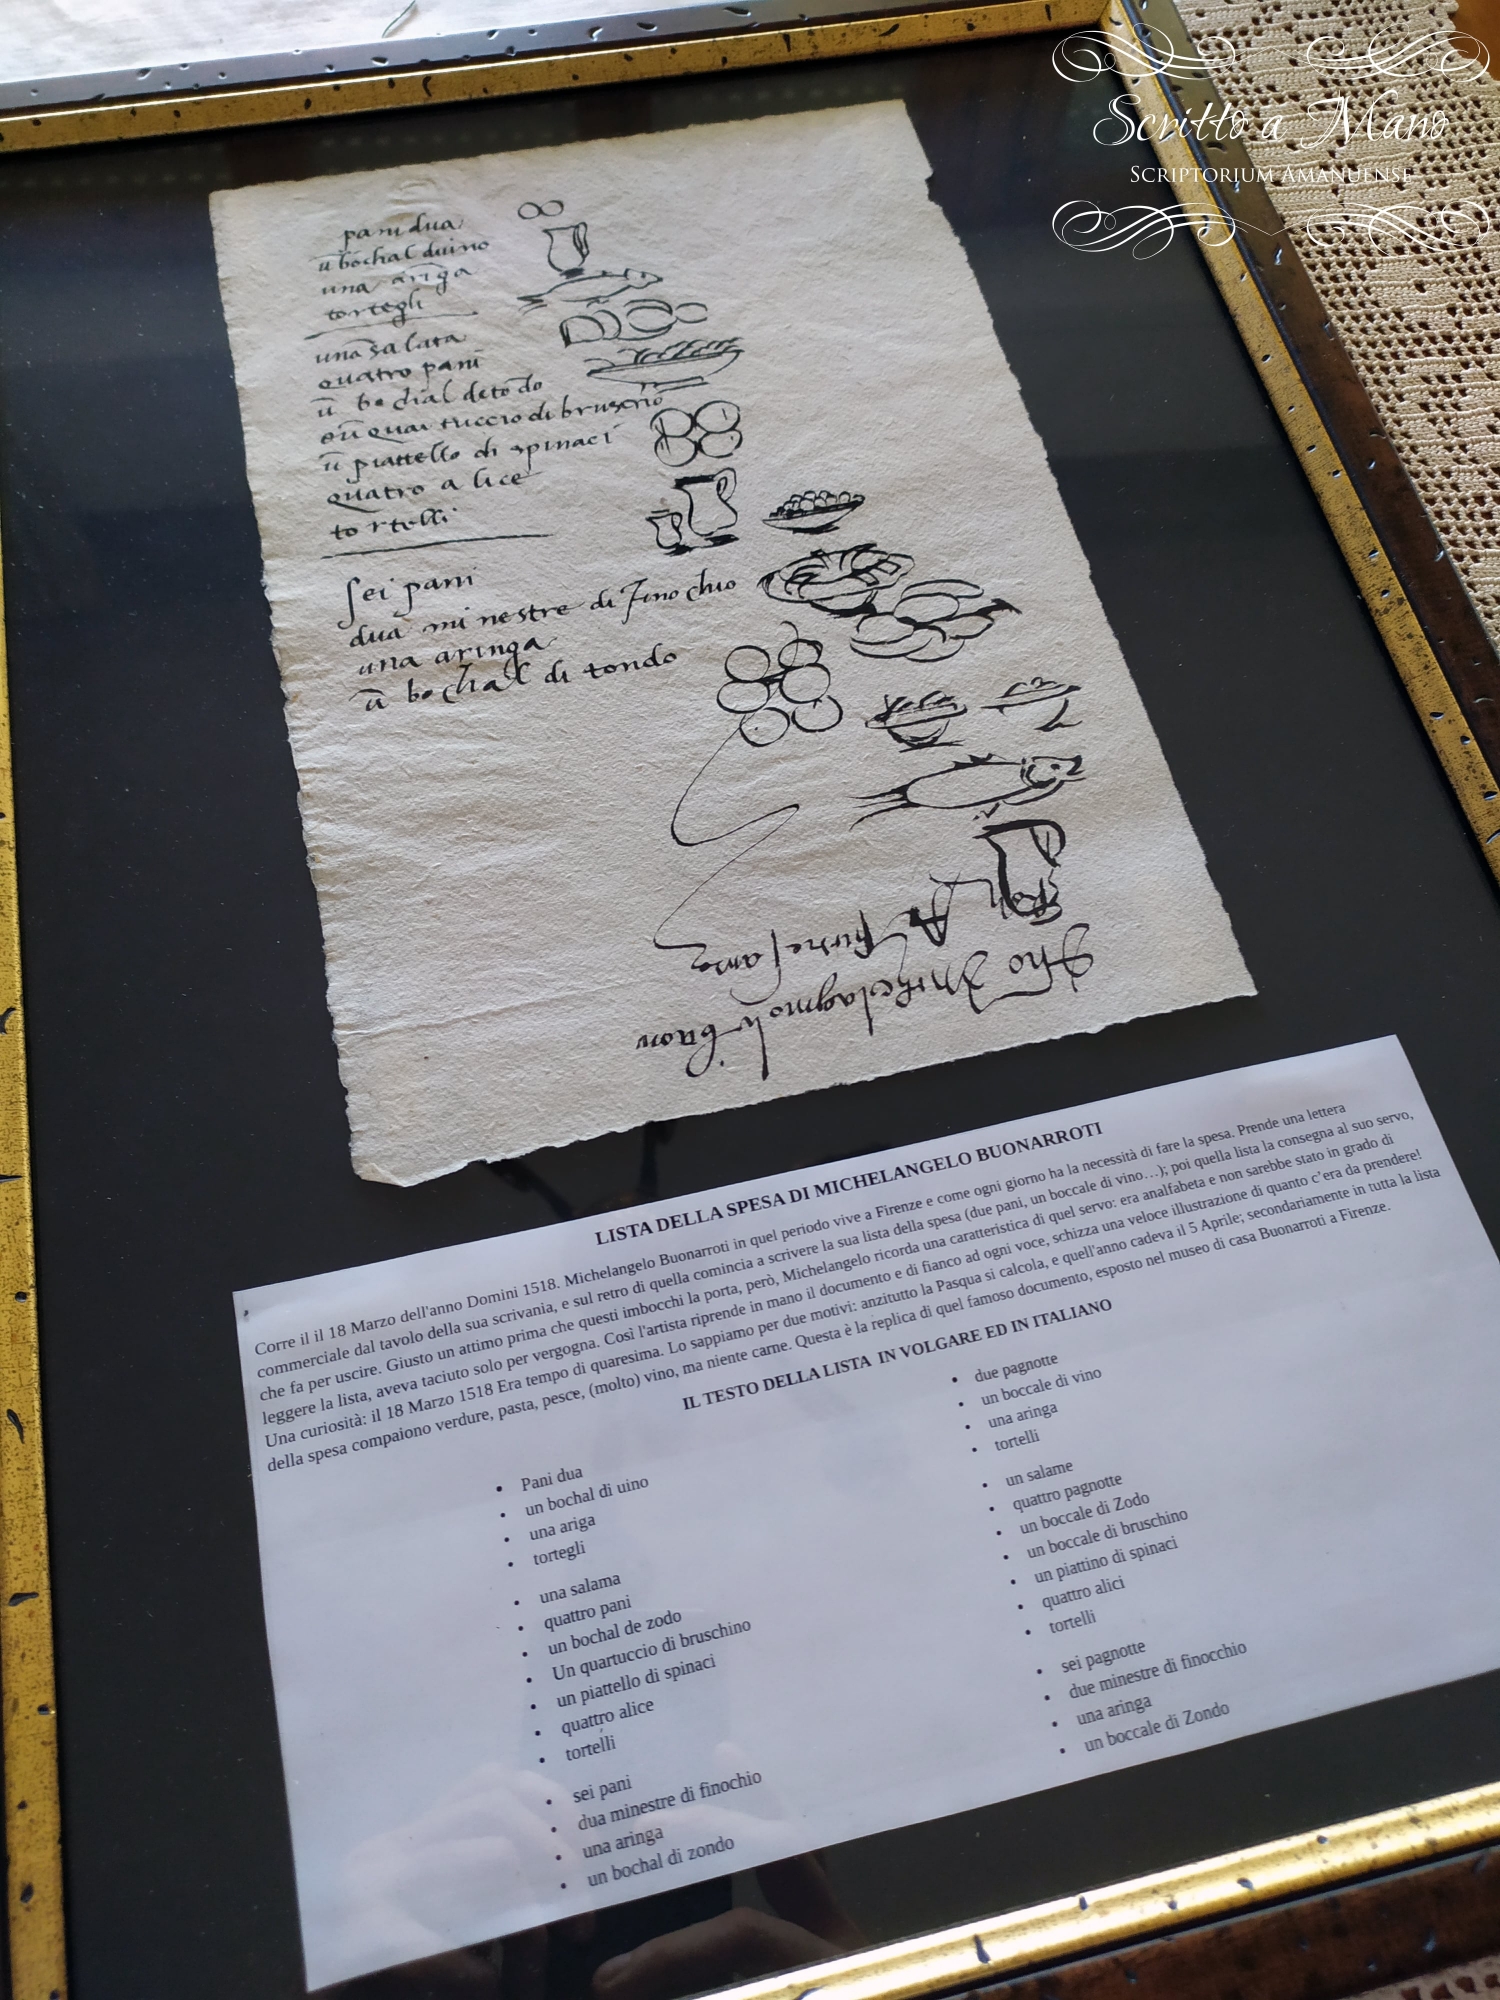 Scritto a Mano
SCRIPTORIUM AMANUENSE
pani dua
ū bochal duino
una ariga
tortegli
una salata
quatro pani
ū bochal detōdo
eūquartuccio di bruscino
ū piattello di spinaci
quatro alice
tortelli
sei pani
dua minestre di finochio
una aringa
ū bochal di tondo
LISTA DELLA SPESA DI MICHELANGELO BUONARROTI
Corre il il 18 Marzo dell'anno Domini 1518. Michelangelo Buonarroti in quel periodo vive a Firenze e come ogni giorno ha la necessità di fare la spesa. Prende una lettera
commerciale dal tavolo della sua scrivania, e sul retro di quella comincia a scrivere la sua lista della spesa (due pani, un boccale di vino…); poi quella lista la consegna al suo servo,
che fa per uscire. Giusto un attimo prima che questi imbocchi la porta, però, Michelangelo ricorda una caratteristica di quel servo: era analfabeta e non sarebbe stato in grado di
leggere la lista, aveva taciuto solo per vergogna. Così l'artista riprende in mano il documento e di fianco ad ogni voce, schizza una veloce illustrazione di quanto c'era da prendere!
Una curiosità: il 18 Marzo 1518 Era tempo di quaresima. Lo sappiamo per due motivi: anzitutto la Pasqua si calcola, e quell'anno cadeva il 5 Aprile; secondariamente in tutta la lista
della spesa compaiono verdure, pasta, pesce, (molto) vino, ma niente carne. Questa è la replica di quel famoso documento, esposto nel museo di casa Buonarroti a Firenze.
IL TESTO DELLA LISTA IN VOLGARE ED IN ITALIANO
• Pani dua
• un bochal di uino
• una ariga
• tortegli
• una salama
• quattro pani
• un bochal de zodo
• Un quartuccio di bruschino
• un piattello di spinaci
• quattro alice
• tortelli
• sei pani
• dua minestre di finochio
• una aringa
• un bochal di zondo
• due pagnotte
• un boccale di vino
• una aringa
• tortelli
• un salame
• quattro pagnotte
• un boccale di Zodo
• un boccale di bruschino
• un piattino di spinaci
• quattro alici
• tortelli
• sei pagnotte
• due minestre di finocchio
• una aringa
• un boccale di Zondo